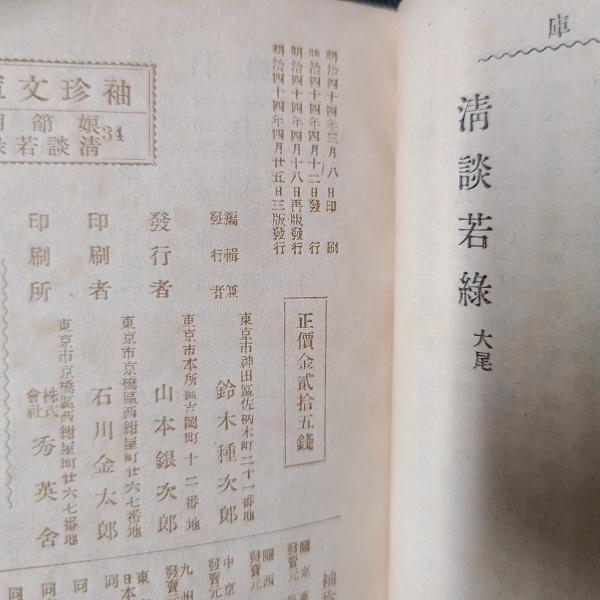 庫
清談若綠
大尾
明治四十四年三月八日印刷
明治四十四年四月十二日發行
明治四十四年四月十八日再版發行
明治四十四年四月廿五日三版發行
袖珍文
34
娘節
清談若
正價金貳拾五錢
編輯兼發行者
東京市神田區佐柄木町二十一番地
鈴木種次郎
發行者
東京市本所區吉岡町十二番地
山本銀次郎
印刷者
東京市京橋區西紺屋町廿六七番地
石川金太郎
印刷所
東京市京橋區西紺屋町廿六七番地
株式會社 秀英舍
袖珍
關東
發賣元
關西
發賣元
中京
發賣元
九州
發賣元
東
日本
同
同
同